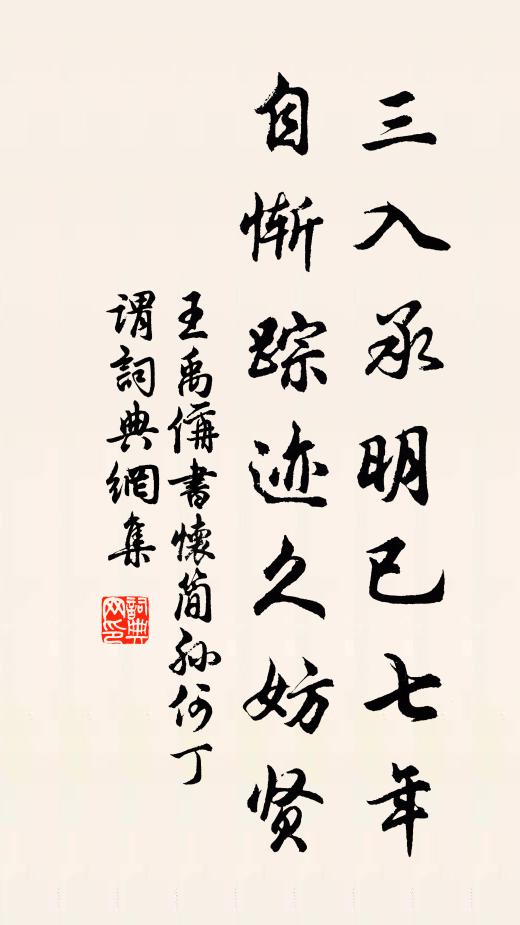 三入承明已七年
自惭踪迹久妨贤
王禹偁書懷简孙何丁
谓詞典網集
詞典
网印